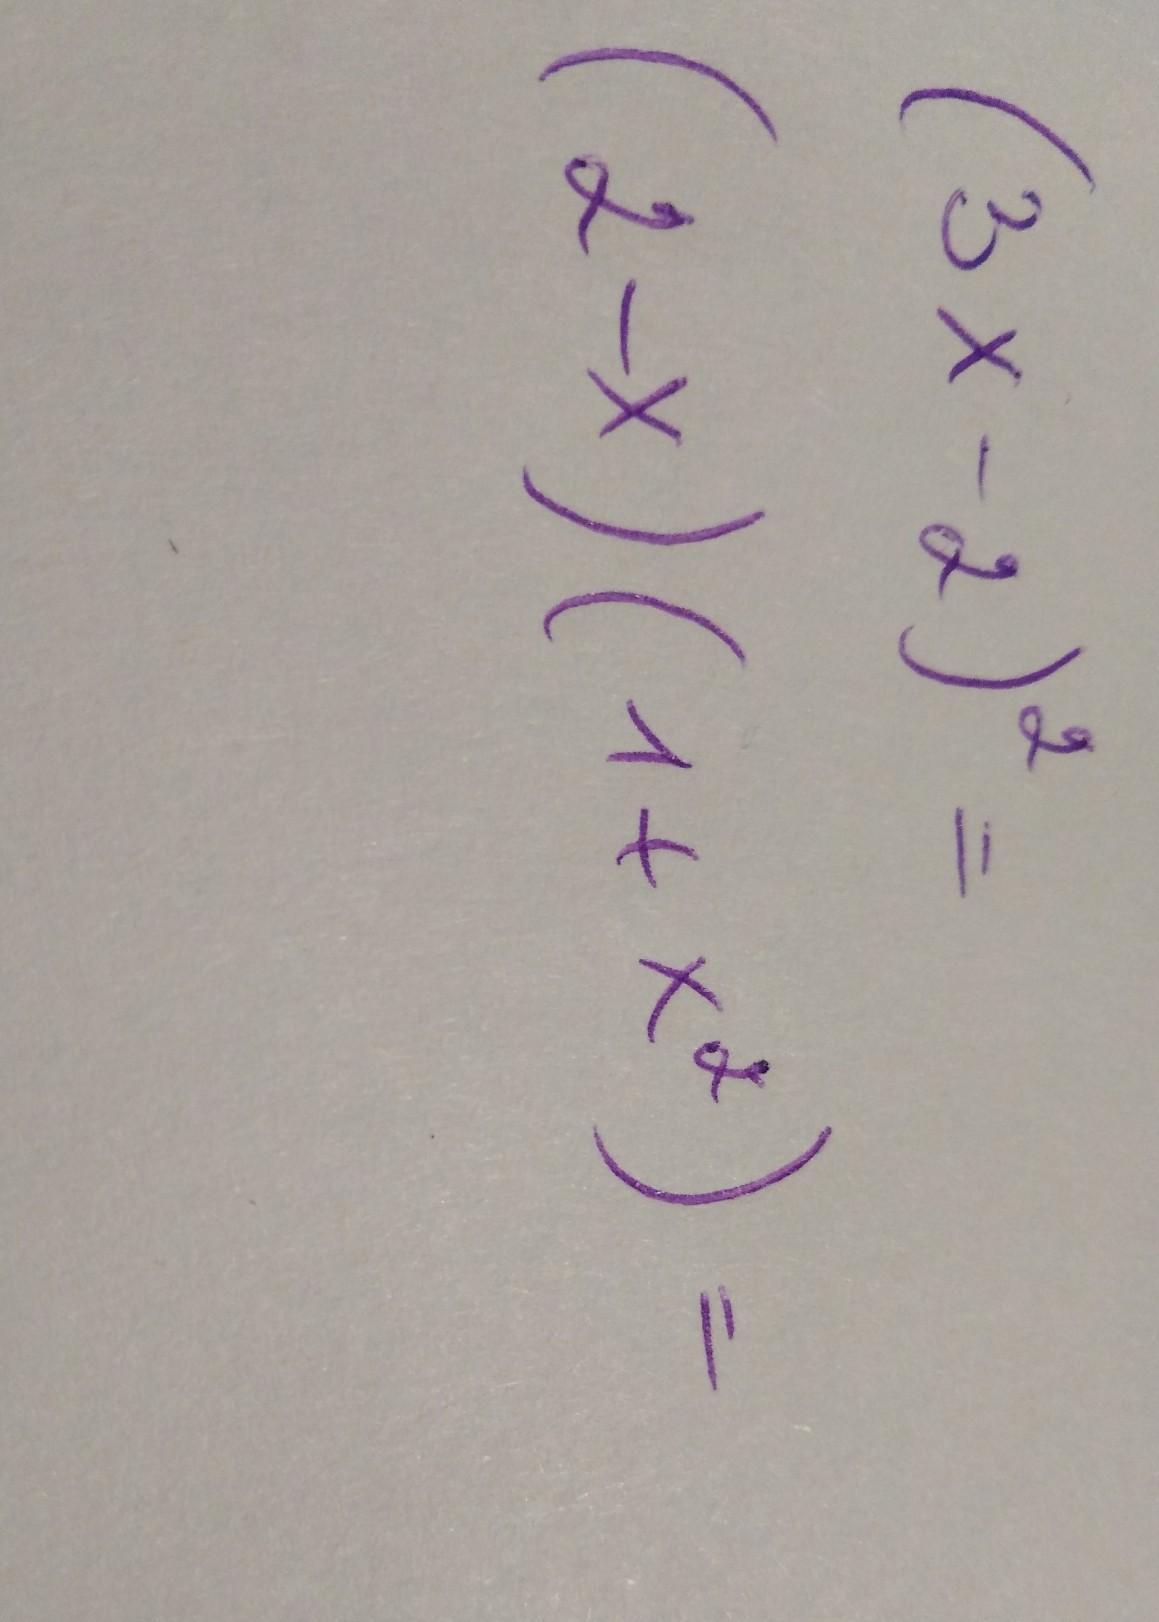 (3x-2)² =
(2-x)(1+x²) =